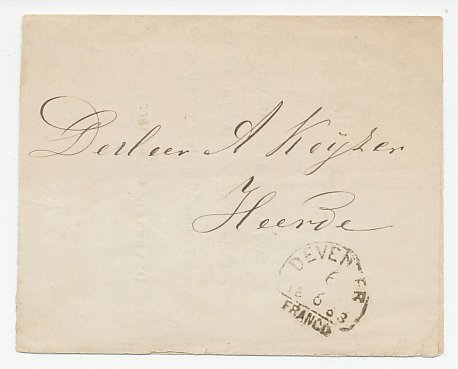 Derleer A Keijzer
Heerde
DEVENTER
6
18 6 63
FRANCO